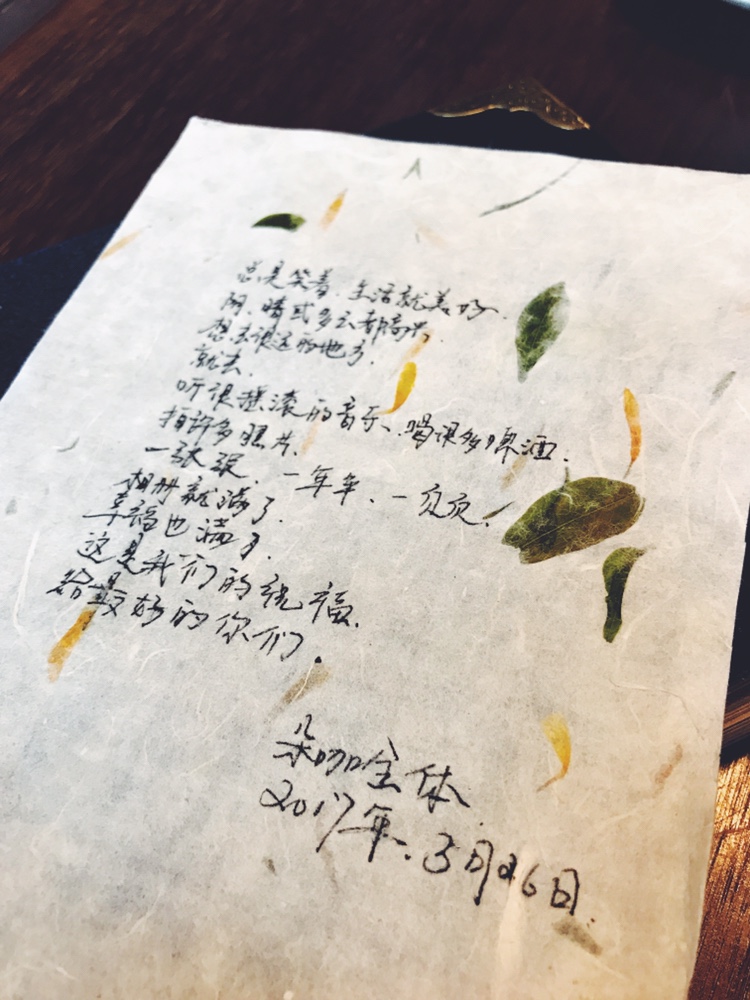 总是笑着.生活就美好.
阴、晴或多云都高兴.
想去很远的地方.
就去.
听很摇滚的音乐、喝很多啤酒.
拍许多照片.
一张张.一年年.一页页.
相册就满了.
幸福也满了.
这是我们的祝福.
给最好的你们.
朵咖全体.
2017年.3月26日.